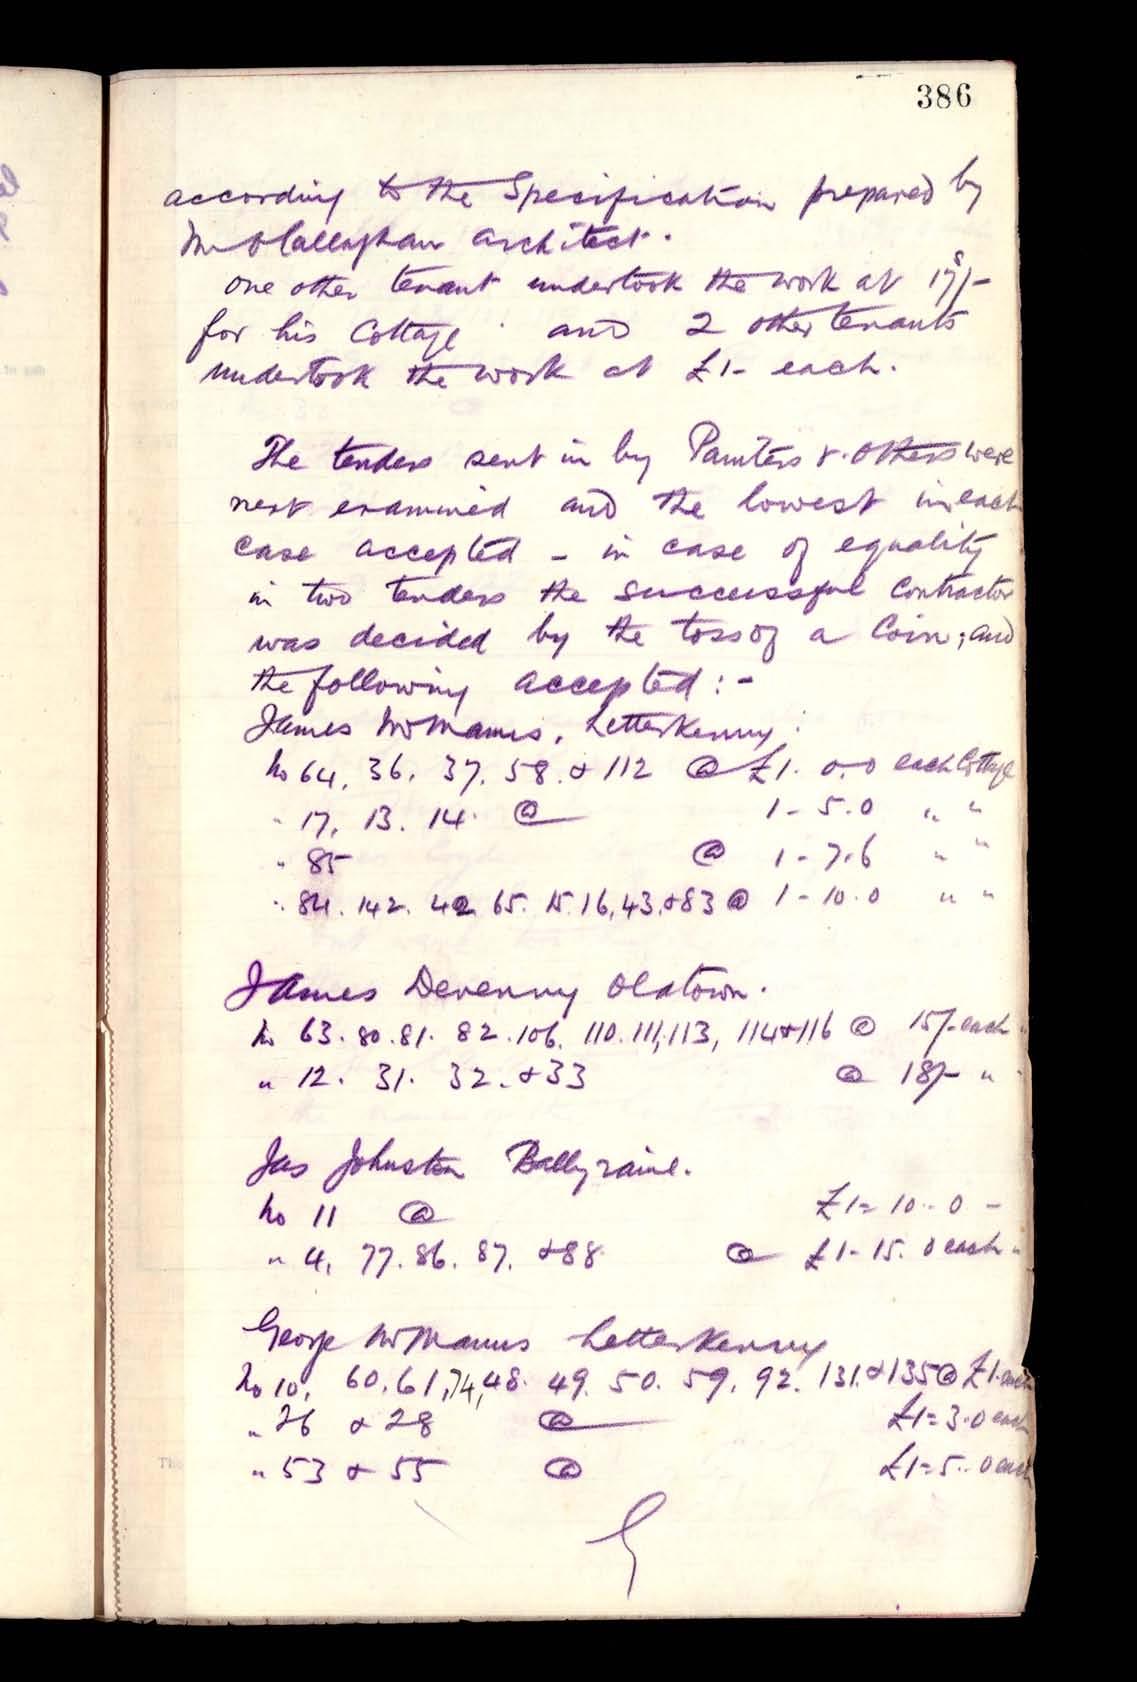 386
according to the Specification prepared by
Mr O'Callaghan Architect.
One other tenant undertook the work at 17s/-
for his Cottage and 2 other tenants
undertook the work at £1- each.
The tenders sent in by Painters & others were
next examined and the lowest in each
case accepted - in case of equality
in two tenders the successful Contractor
was decided by the toss of a Coin; and
the following accepted :-
James McManus, Letterkenny.
No 64, 36, 37, 58. & 112 @ £1. 0.0 each Cottage
" 17, 13. 14. @ 1-5.0 " "
" 85 @ 1-7.6 " "
" 84. 142. 42. 65. 15. 16, 43. & 83 @ 1-10.0 " "
James Devenny Oldtown.
No 63. 80. 81. 82. 106. 110. 111, 113, 114 & 116 @ 15/- each "
" 12. 31. 32. & 33 @ 18/- " "
Jas Johnston Ballyraine.
No 11 @ £1=10..0 -
" 4, 77. 86. 87. & 88. @ £1-15. 0 each "
George McManus Letterkenny
No 10, 60, 61, 74, 48. 49. 50. 59. 92. 131. & 135 @ £1. each
" 26 & 28 @ £1=3.0 each
" 53 & 55 @ £1=5..0 each